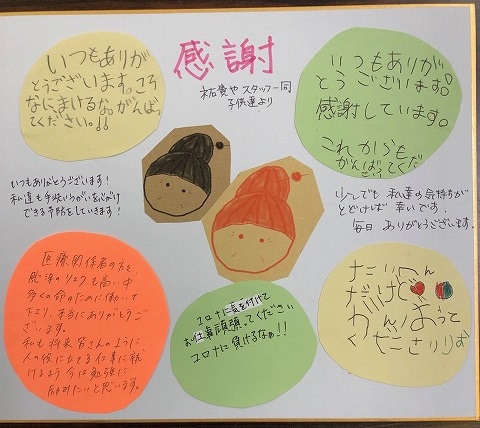 感謝
祐貴や スタッフ一同
子供達より
いつもありが
とうございます。ころ
なにまけるな。がんばっ
てください。!!
いつもありが
とうございます!
感謝しています。
これからも
がんばってくだ
さい
いつもありがとうございます!
私達も手洗いうがいを心がけ
できる予防をしていきます!
少しでも 私達の気持ちが
とどけば 幸いです。
毎日 ありがとうございます。
医療関係者の方々、
感染のリスクも高い中
多くの命のために働いて
下さり、本当にありがとうご
ざいます。
私も将来皆さんのように
人の役に立てる仕事に就
けるよう今は勉強に
励みたいと思います。
コロナに気を付けて
お仕事頑張ってください
コロナに負けるなぁ!!
たいへん
だけど
がんばって
ください